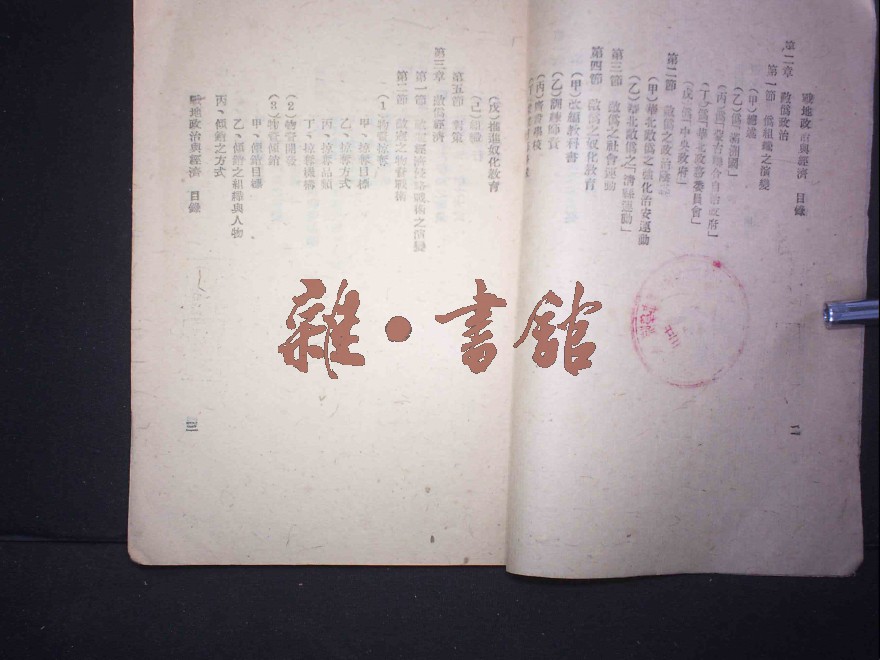 戰地政治與經濟 目錄
第二章 敵僞政治
第一節 僞組織之演變
(甲)總述
(乙)僞「滿洲國」
(丙)僞「蒙古聯合自治政府」
(丁)僞「華北政務委員會」
(戊)僞「中央政府」
第二節 敵僞之政治陰謀
(甲)華北敵僞之強化治安運動
(乙)華北敵僞之「清鄉運動」
第三節 敵僞之社會運動
第四節 敵僞之奴化教育
(甲)改編教科書
(乙)訓練師資
二
(戊)推進奴化教育
(己)組織
第五節 對策
第三章 敵僞經濟
第一節 敵寇經濟侵略戰術之演變
第二節 敵寇之物資戰術
(1)物資掠奪
甲、掠奪目標
乙、掠奪方式
丙、掠奪品類
丁、掠奪機構
(2)物資開發
(3)物資傾銷
甲、傾銷目標
乙、傾銷之組織與人物
丙、傾銷之方式
戰地政治與經濟 目錄
三
雜·書館